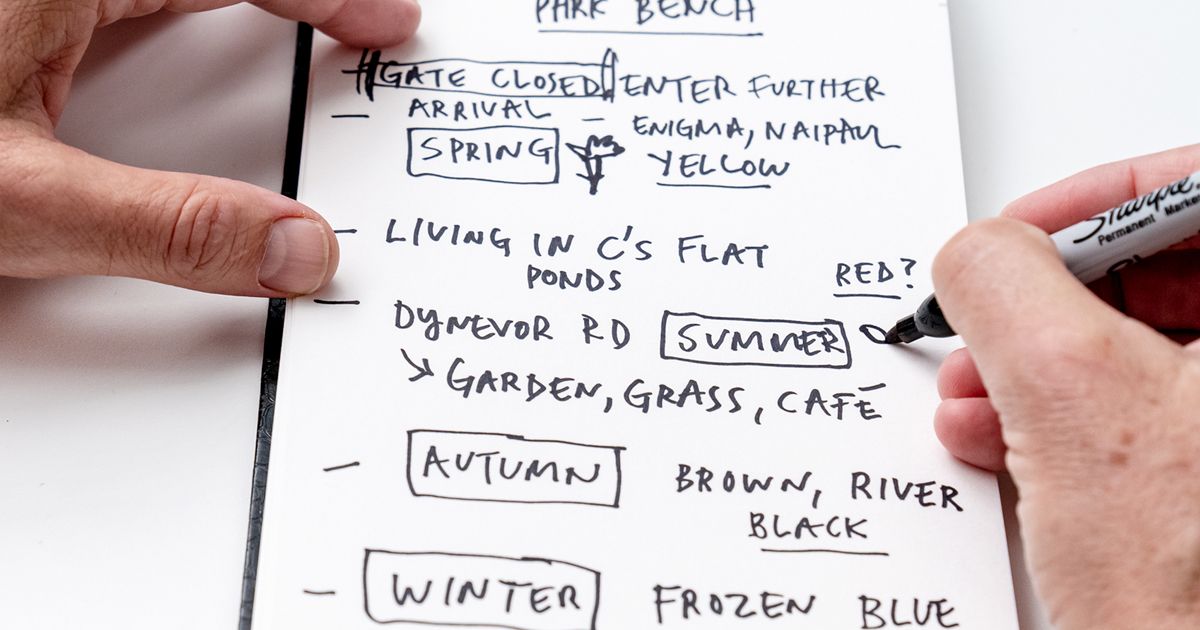 PARK BENCH
GATE CLOSED ENTER FURTHER
— ARRIVAL — ENIGMA, NAIPAUL
SPRING YELLOW
— LIVING IN C'S FLAT
PONDS
RED?
— DYNEVOR RD SUMMER
GARDEN, GRASS, CAFÉ
— AUTUMN BROWN, RIVER
BLACK
— WINTER FROZEN BLUE
Sharpie
Permanent Marker